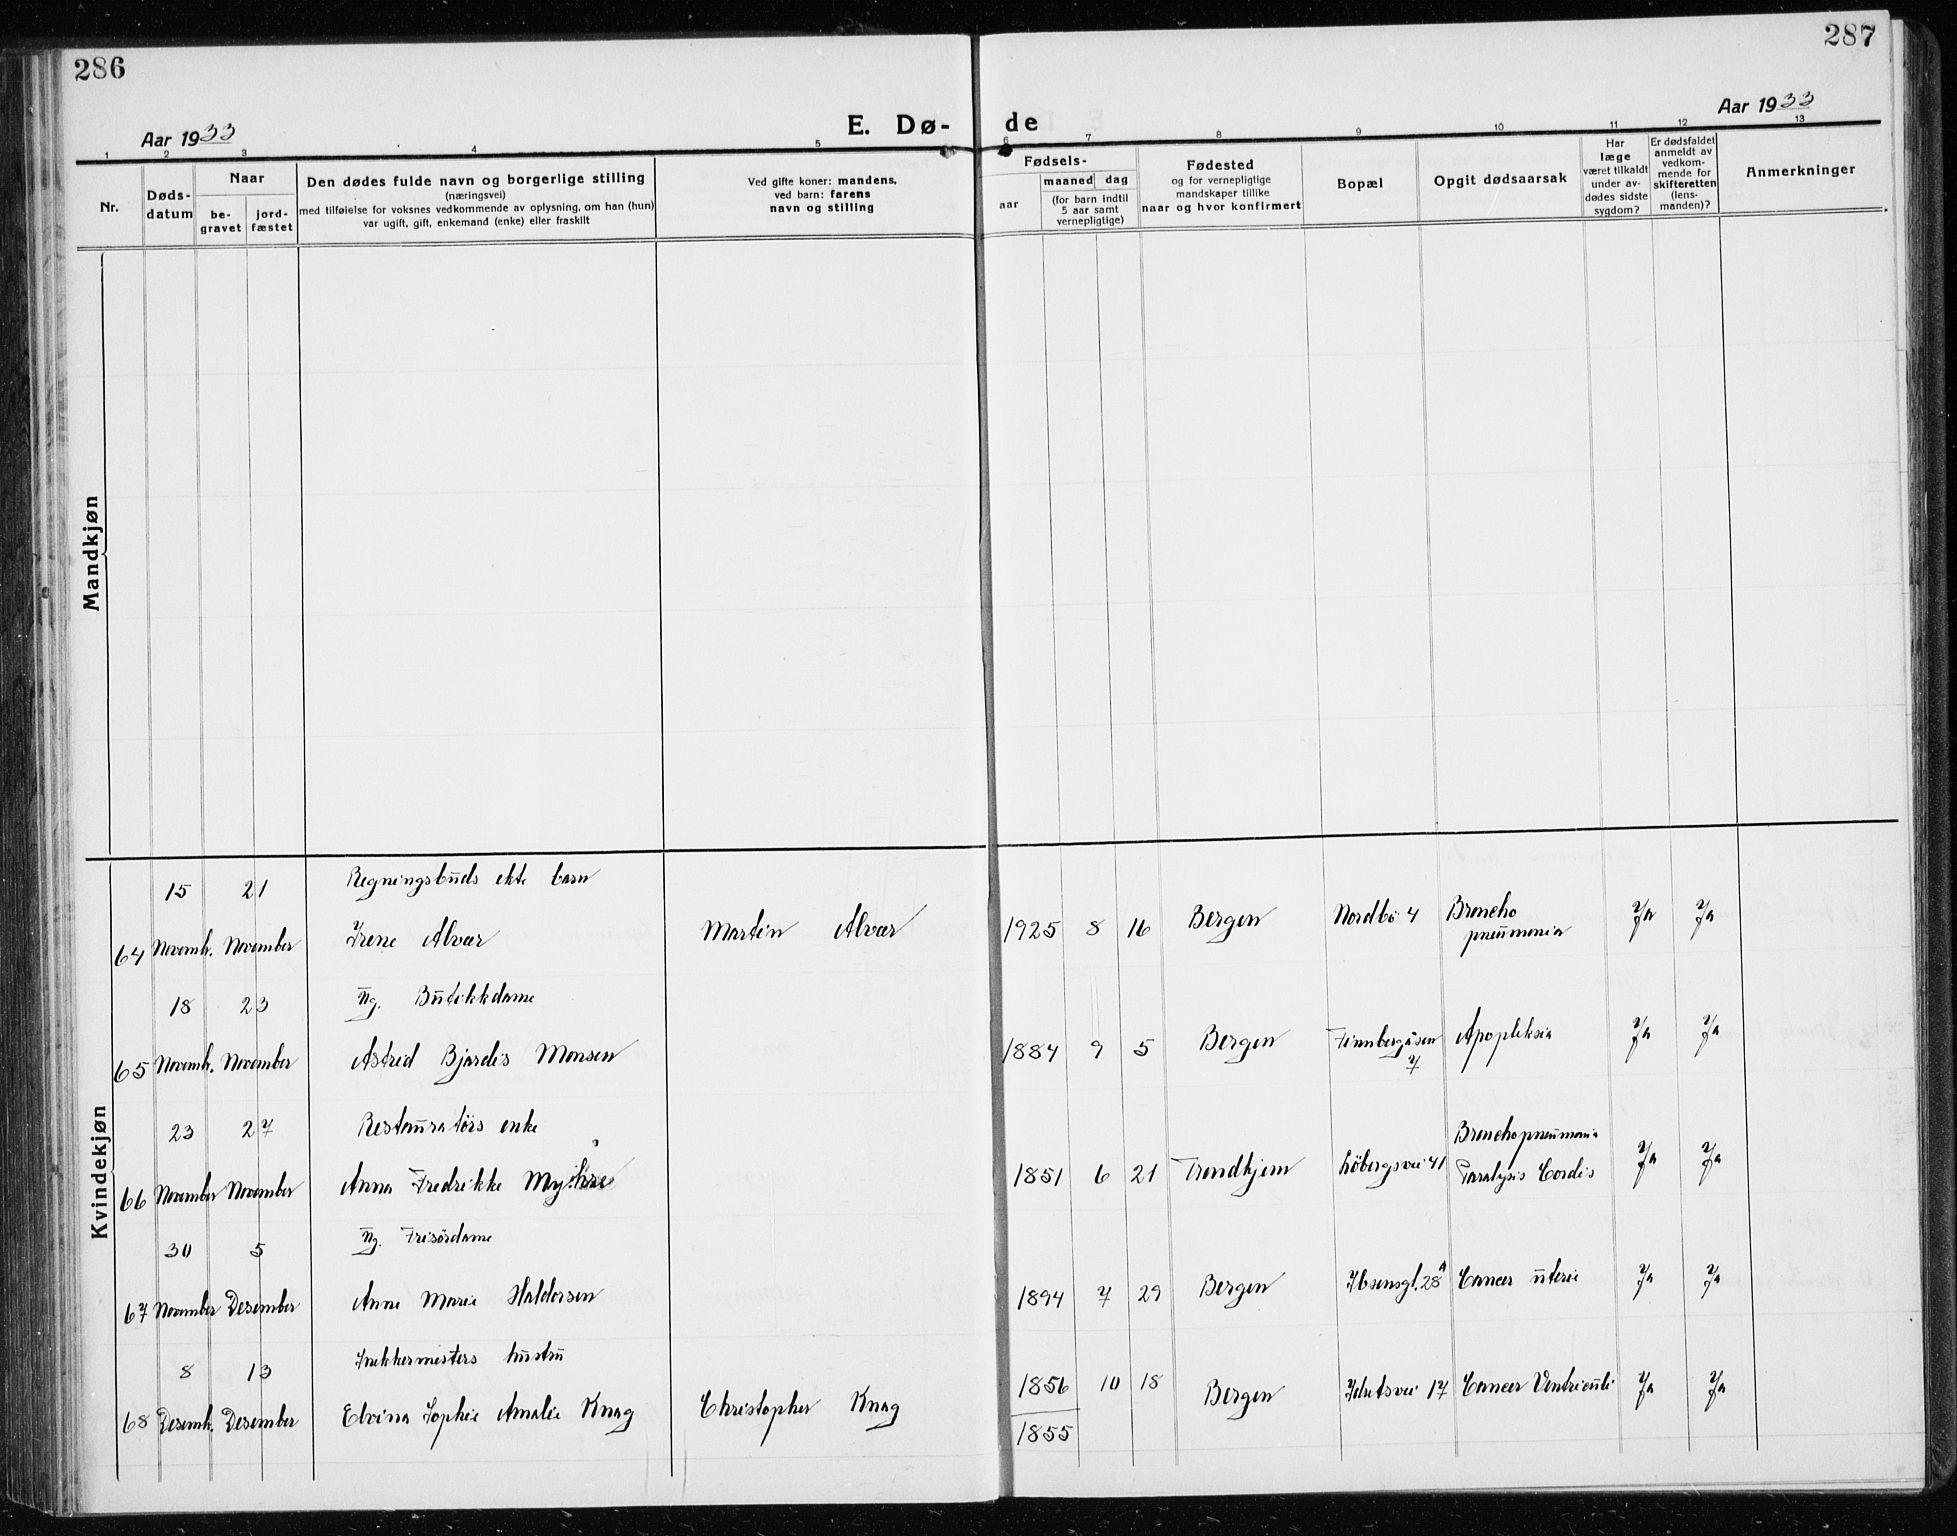 286
287
Aar 1933
E. Dø-
de
Aar 1933
1 2 3 4 5 6 7 8 9 10 11 12 13
Nr.
Døds-
datum
Naar
be-
gravet
jord-
fæstet
Den dødes fulde navn og borgerlige stilling
(næringsvei)
med tilføielse for voksnes vedkommende av oplysning, om han (hun)
var ugift, gift, enkemand (enke) eller fraskilt
Ved gifte koner: mandens,
ved barn: farens
navn og stilling
Fødsels-
aar
maaned dag
(for barn indtil
5 aar samt
vernepligtige)
Fødested
og for vernepligtige
mandskaper tillike
naar og hvor konfirmert
Bopæl
Opgit dødsaarsak
Har
læge
været tilkaldt
under av-
dødes sidste
sygdom?
Er dødsfaldet
anmeldt av
vedkom-
mende for
skifteretten
(lens-
manden)?
Anmerkninger
Mandkjøn
Kvindekjøn
15 21 Regningsbuds ekte barn
64 Novemb. November Irene Alvær Martin Alvær 1925 8 16 Bergen Nordbö 4 Broncho
pneumonia Ja Ja
18 23 Ug. Butikkdame
65 Novemb. November Astrid Bjardis Monsen 1884 9 5 Bergen Finnbergåsen
7 Apopleksia Ja Ja
23 27 Restauratörs enke
66 November November Anna Fredrikke Myhre 1851 6 21 Trondhjem Löbergsvei 41 Bronchopneumonia
Paralysis Cordis Ja Ja
30 5 Ug. Frisördame
67 November Desember Anne Marie Haldorsen 1894 7 29 Bergen Ibsensgt. 28A Cancer uterie Ja Ja
8 13 Snekkermesters hustru
68 Desemb. Desember Elvina Sophie Amalie Knag Christopher Knag 1856 10 18 Bergen Idrætsvei 17 Cancer Ventriculi Ja Ja
1855